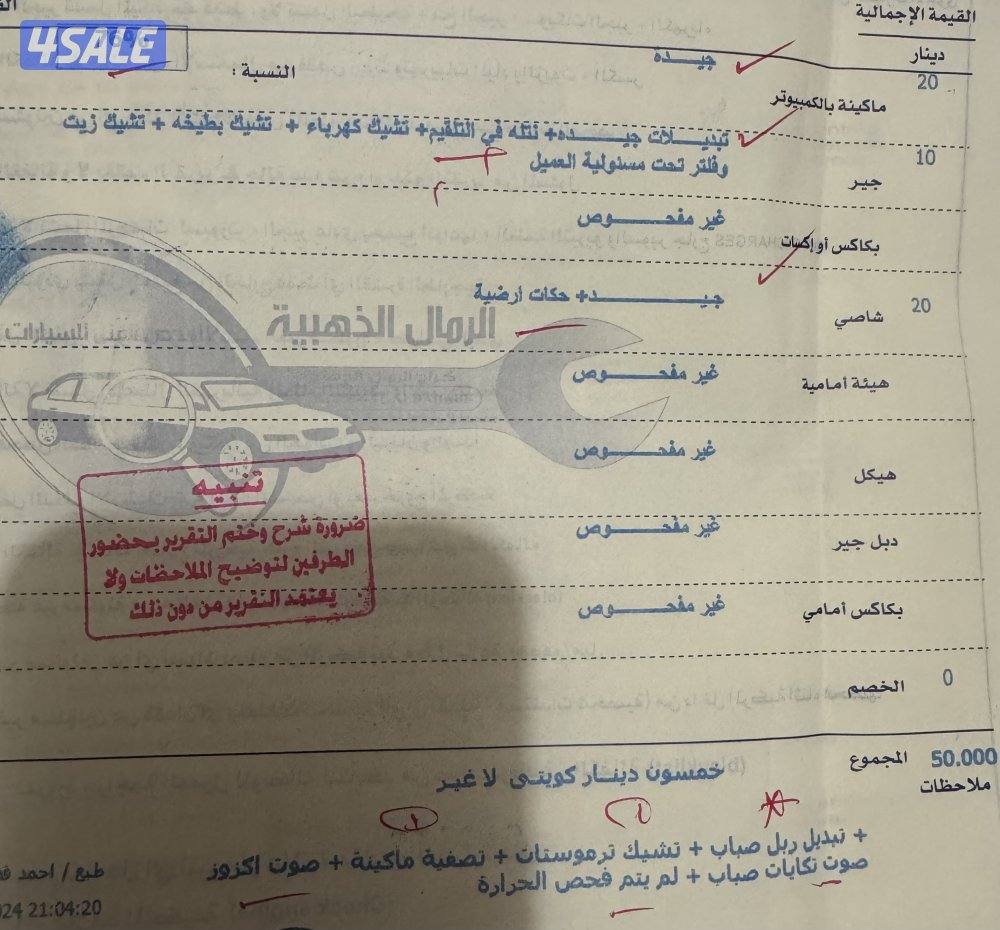 4SALE
القيمة الإجمالية
دينار
جيـــده
النسبة :
20
ماكينة بالكمبيوتر
تبديـــلات جيـــده+ نتله في التلقيم+ تشيك كهرباء + تشيك بطيخه + تشيك زيت
وفلتر تحت مسئولية العميل
10
جير
غير مفحـــوص
بكاكس أو إكسات
جيـــــد+ حكات أرضية
20
شاصي
الرمال الذهبية
غير مفحـــوص
هيئة أمامية
غير مفحـــوص
هيكل
غير مفحـــوص
دبل جير
غير مفحـــوص
بكاكس أمامي
تنبيه
ضرورة شرح وختم التقرير بحضور
الطرفين لتوضيح الملاحظات ولا
يعتمد التقرير من دون ذلك
0
الخصم
50.000
المجموع
خمسون دينـار كويتى لا غير
ملاحظات
+ تبديل ربل صباب + تشيك ترموستات + تصفية ماكينة + صوت اكزوز
صوت تكايات صباب + لم يتم فحص الحرارة
طبع / احمد
21:04:20